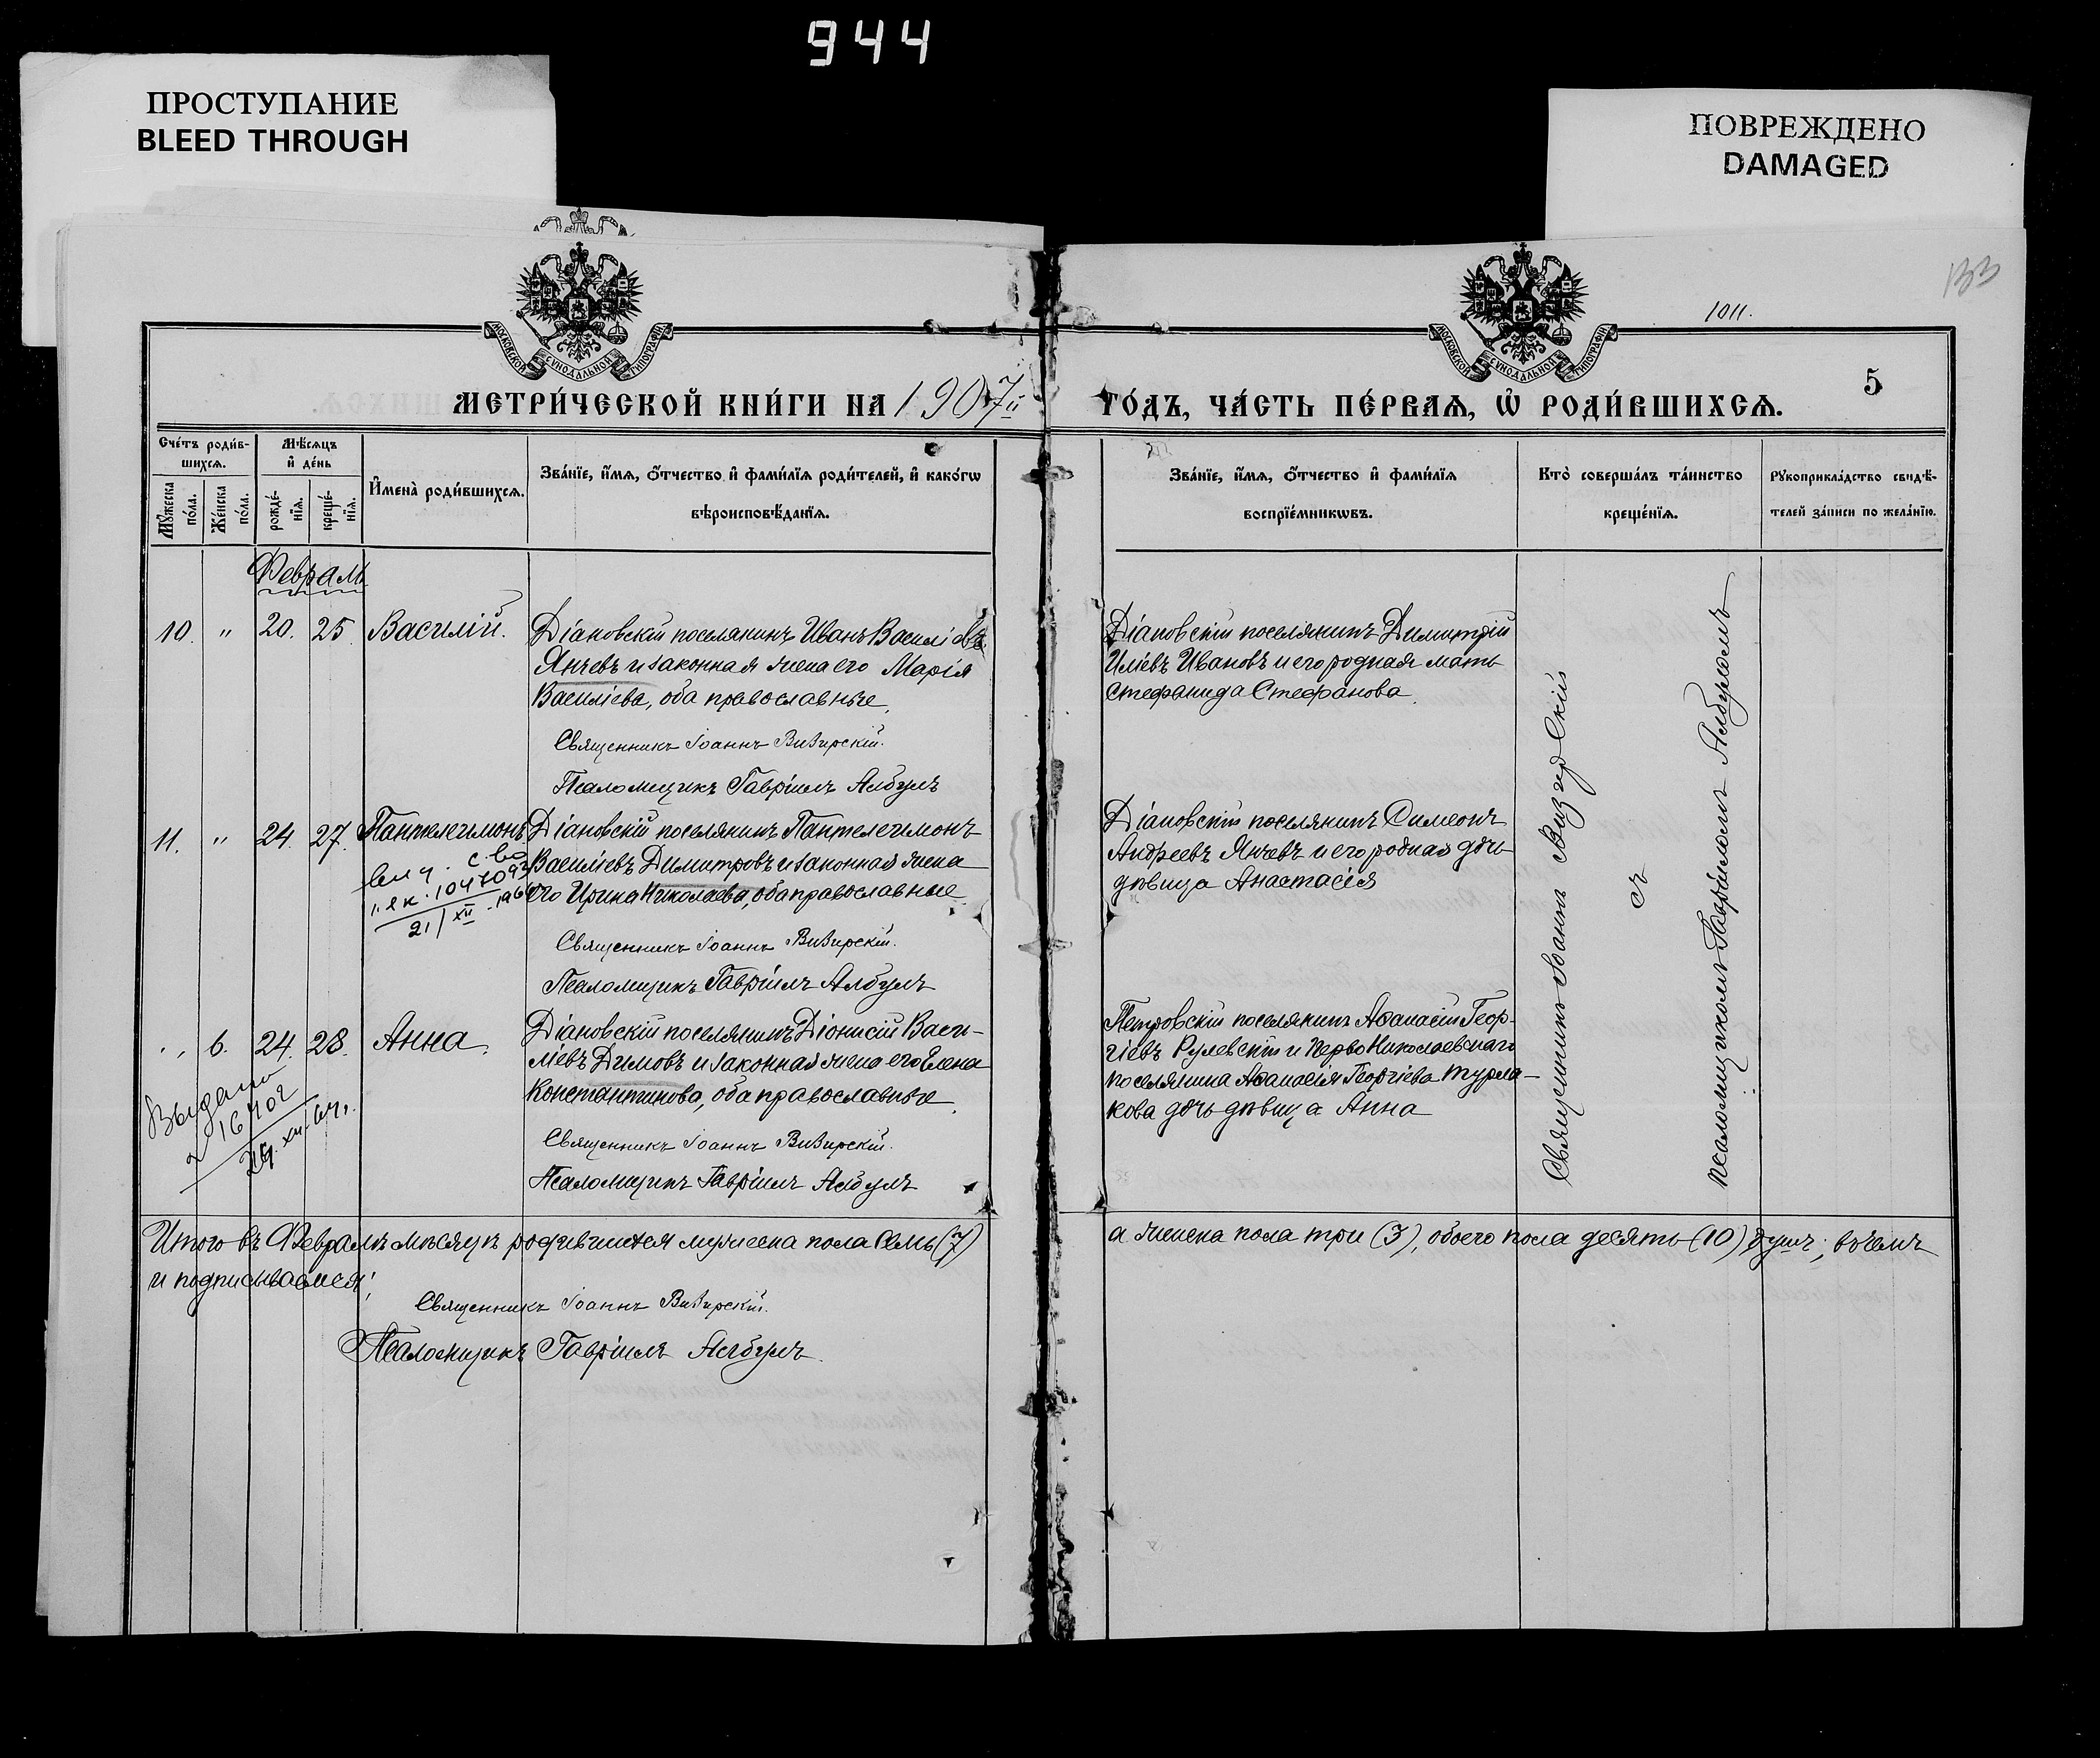 944
ПРОСТУПАНИЕ
BLEED THROUGH
ПОВРЕЖДЕНО
DAMAGED
133
1011.
МОСКОВСКОЙ СУНОДАЛЬНОЙ ТИПОГРАФІИ
МОСКОВСКОЙ СУНОДАЛЬНОЙ ТИПОГРАФІИ
5
МЕТРИ́ЧЕСКОЙ КНИ́ГИ НА 1907й
ГО́ДЪ, ЧА́СТЬ ПЕ́РВАѦ, Ѡ҆ РОДИ́ВШИХСѦ.
Сче́тъ роди́в-
шихсѧ.
Мѣ́сѧцъ
и҆ де́нь
Мꙋ́жеска
по́ла.
Же́нска
по́ла.
рожде́-
нїѧ.
креще́-
нїѧ.
И҆мена̀ роди́вшихсѧ.
Зва́нїе, и҆́мѧ, ѻ҆́тчество и҆ фами́лїѧ роди́телей, и҆ како́гѡ
вѣроисповѣ́данїѧ.
Зва́нїе, и҆́мѧ, ѻ҆́тчество и҆ фами́лїѧ
воспрїе́мникѡвъ.
Кто̀ соверша́лъ та́инство
креще́нїѧ.
Рꙋкоприкла́дство свидѣ́-
телей за́писи по жела́нїю.
Февраль
10. " 20. 25 Василій.
Діановскій поселянинъ Иванъ Василіевъ
Янчевъ и законная жена его Марія
Василіева, оба православные.
Священникъ Іоаннъ Визирскій.
Псаломщикъ Гавріилъ Албулъ
Діановскій поселянинъ Димитрій
Иліевъ Ивановъ и его родная мать
Стефанида Стефанова.
11. " 24. 27. Пантелеимонъ
21/XII
Діановскій поселянинъ Пантелеимонъ
Василіевъ Димитровъ и законная жена
его Ирина Николаева, оба православные
Священникъ Іоаннъ Визирскій.
Псаломщикъ Гавріилъ Албулъ
Діановскій поселянинъ Симеонъ
Андреевъ Янчевъ и его родная дочь
дѣвица Анастасія
" 6. 24. 28. Анна.
Выдано
16402
XII 64г.
Діановскій поселянинъ Діонисій Васи-
ліевъ Димовъ и законная жена его Елена
Константинова, оба православные.
Священникъ Іоаннъ Визирскій.
Псаломщикъ Гавріилъ Албулъ
Петровскій поселянинъ Аѳанасій Геор-
гіевъ Рулевскій и Перво Николаевскаго
поселянина Аѳанасія Георгіева Турла-
кова дочь дѣвица Анна
Священникъ Іоаннъ Визирскій
съ
псаломщикомъ Гавріиломъ Албуломъ
Итого въ Февралѣ мѣсяцѣ родившихся мужеска пола семь (7)
а женска пола три (3), обоего пола десять (10) душъ; въ чемъ
и подписываемся:
Священникъ Іоаннъ Визирскій.
Псаломщикъ Гавріилъ Албулъ.